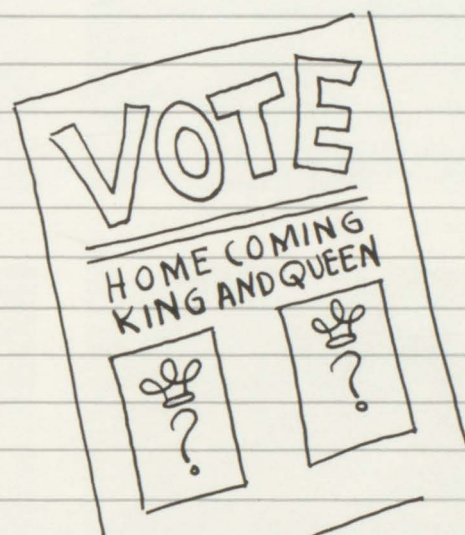 VOTE
HOME COMING
KING AND QUEEN
?
?